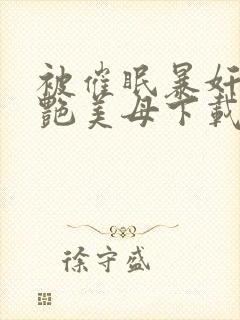 被催眠暴奸
艳美母下載
徐守盛